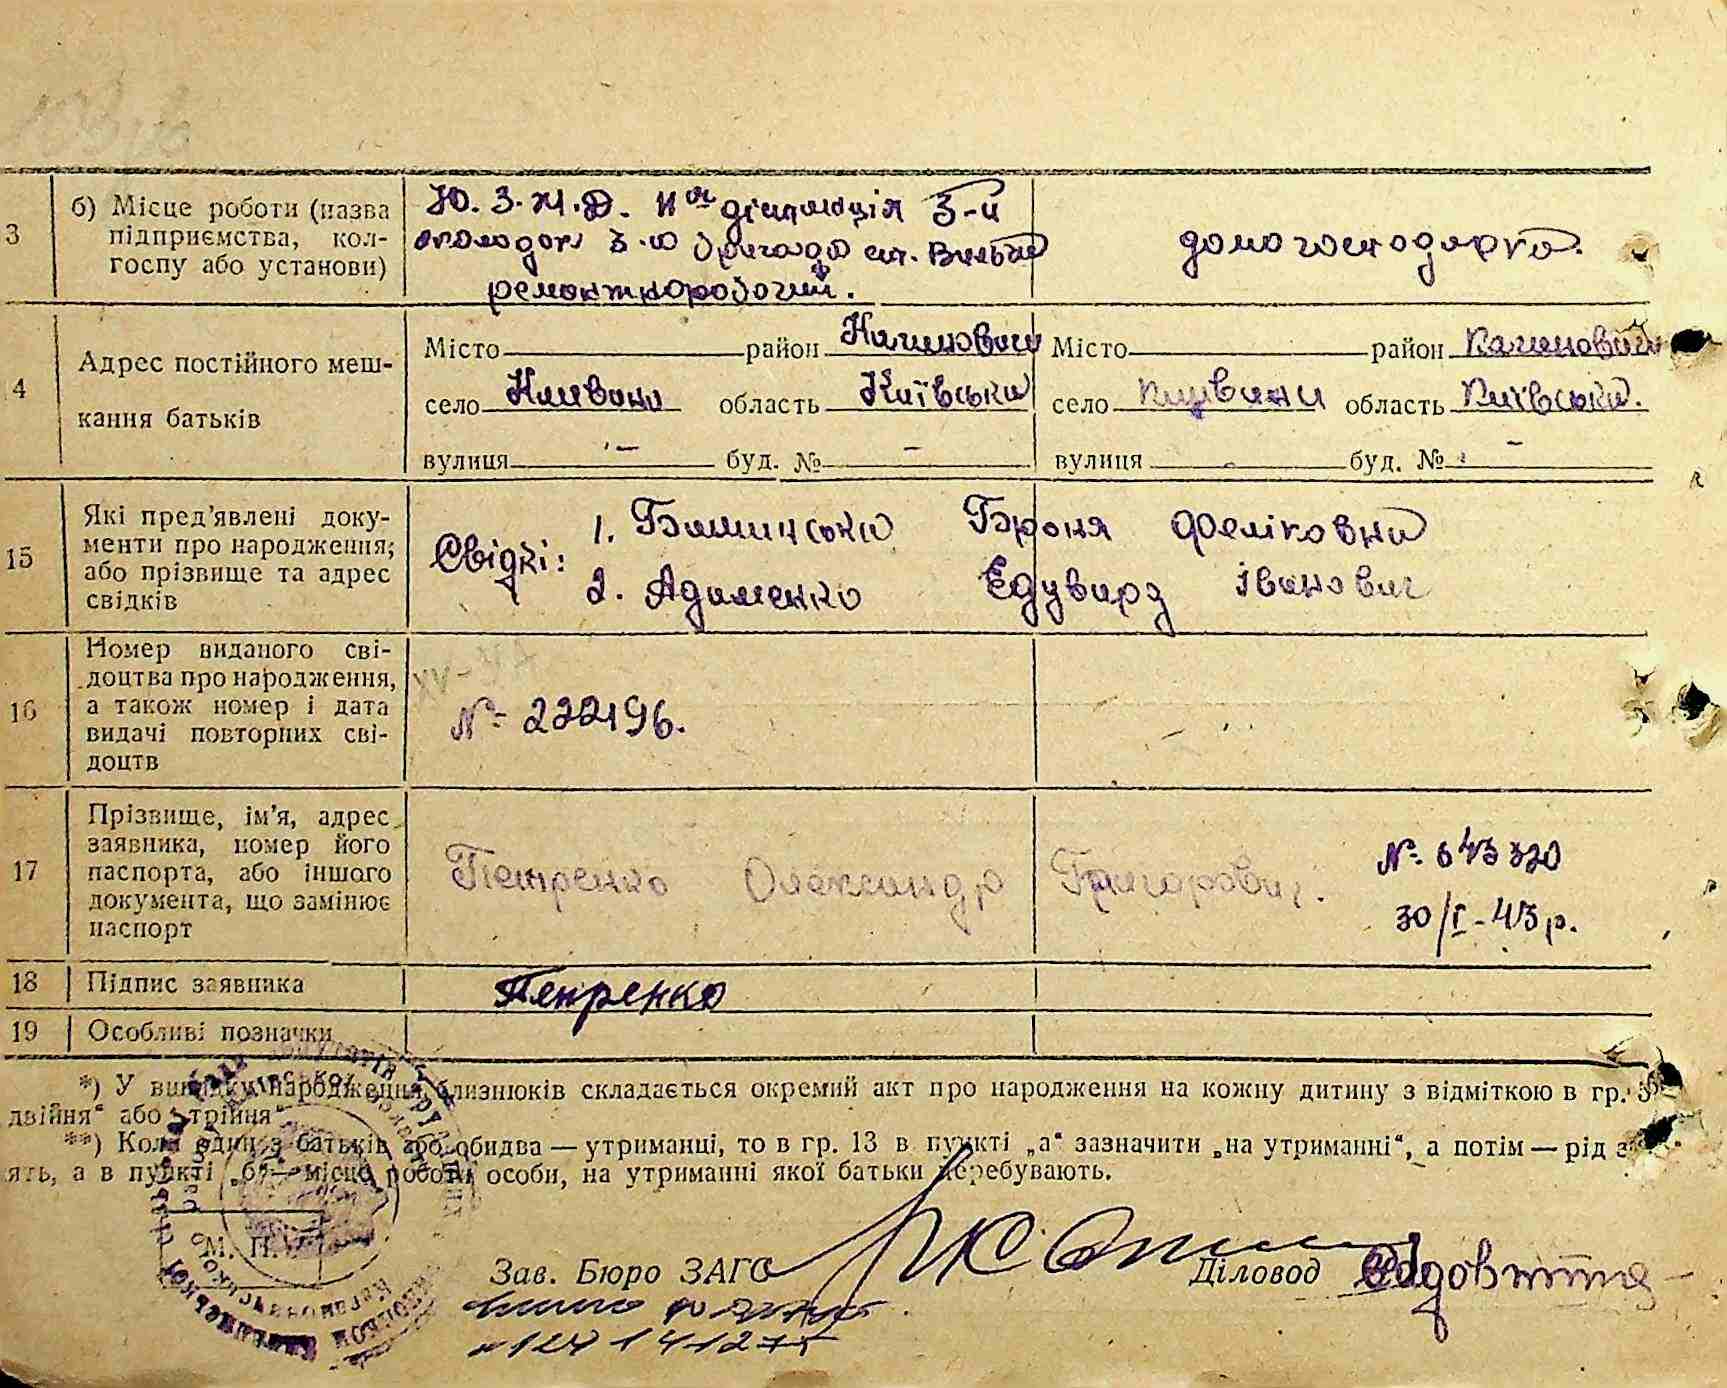 3 б) Місце роботи (назва підприємства, колгоспу або установи)
Ю. З. Ж. Д. 11 ая дистанція 3-й
околодок 3-ю бригада ст. Вильча
ремонтноробочий.
домогосподарка.
4 Адрес постійного мешкання батьків
Місто район
село область Київська
вулиця - буд. № -
Місто район
село область Київська.
вулиця - буд. № -
15 Які пред'явлені документи про народження; або прізвище та адрес свідків
Свідкі: 1. Броня Феліковна
2. Адаменко Едувард Іванович
16 Номер виданого свідоцтва про народження, а також номер і дата видачі повторних свідоцтв
№ 222196.
17 Прізвище, ім'я, адрес заявника, номер його паспорта, або іншого документа, що замінює паспорт
Петренко Олександр Григорович.
№ 643320
30/I-43 р.
18 Підпис заявника
Петренко
19 Особливі позначки
*) У випадку народження близнюків складається окремий акт про народження на кожну дитину з відміткою в гр. 3
двійня“ або „трійня“
**) Коли один з батьків або обидва — утриманці, то в гр. 13 в пункті „а“ зазначити „на утриманні“, а потім — рід з
ять, а в пункті „б“ — місце роботи особи, на утриманні якої батьки перебувають.
М. П.
Зав. Бюро ЗАГС
Діловод